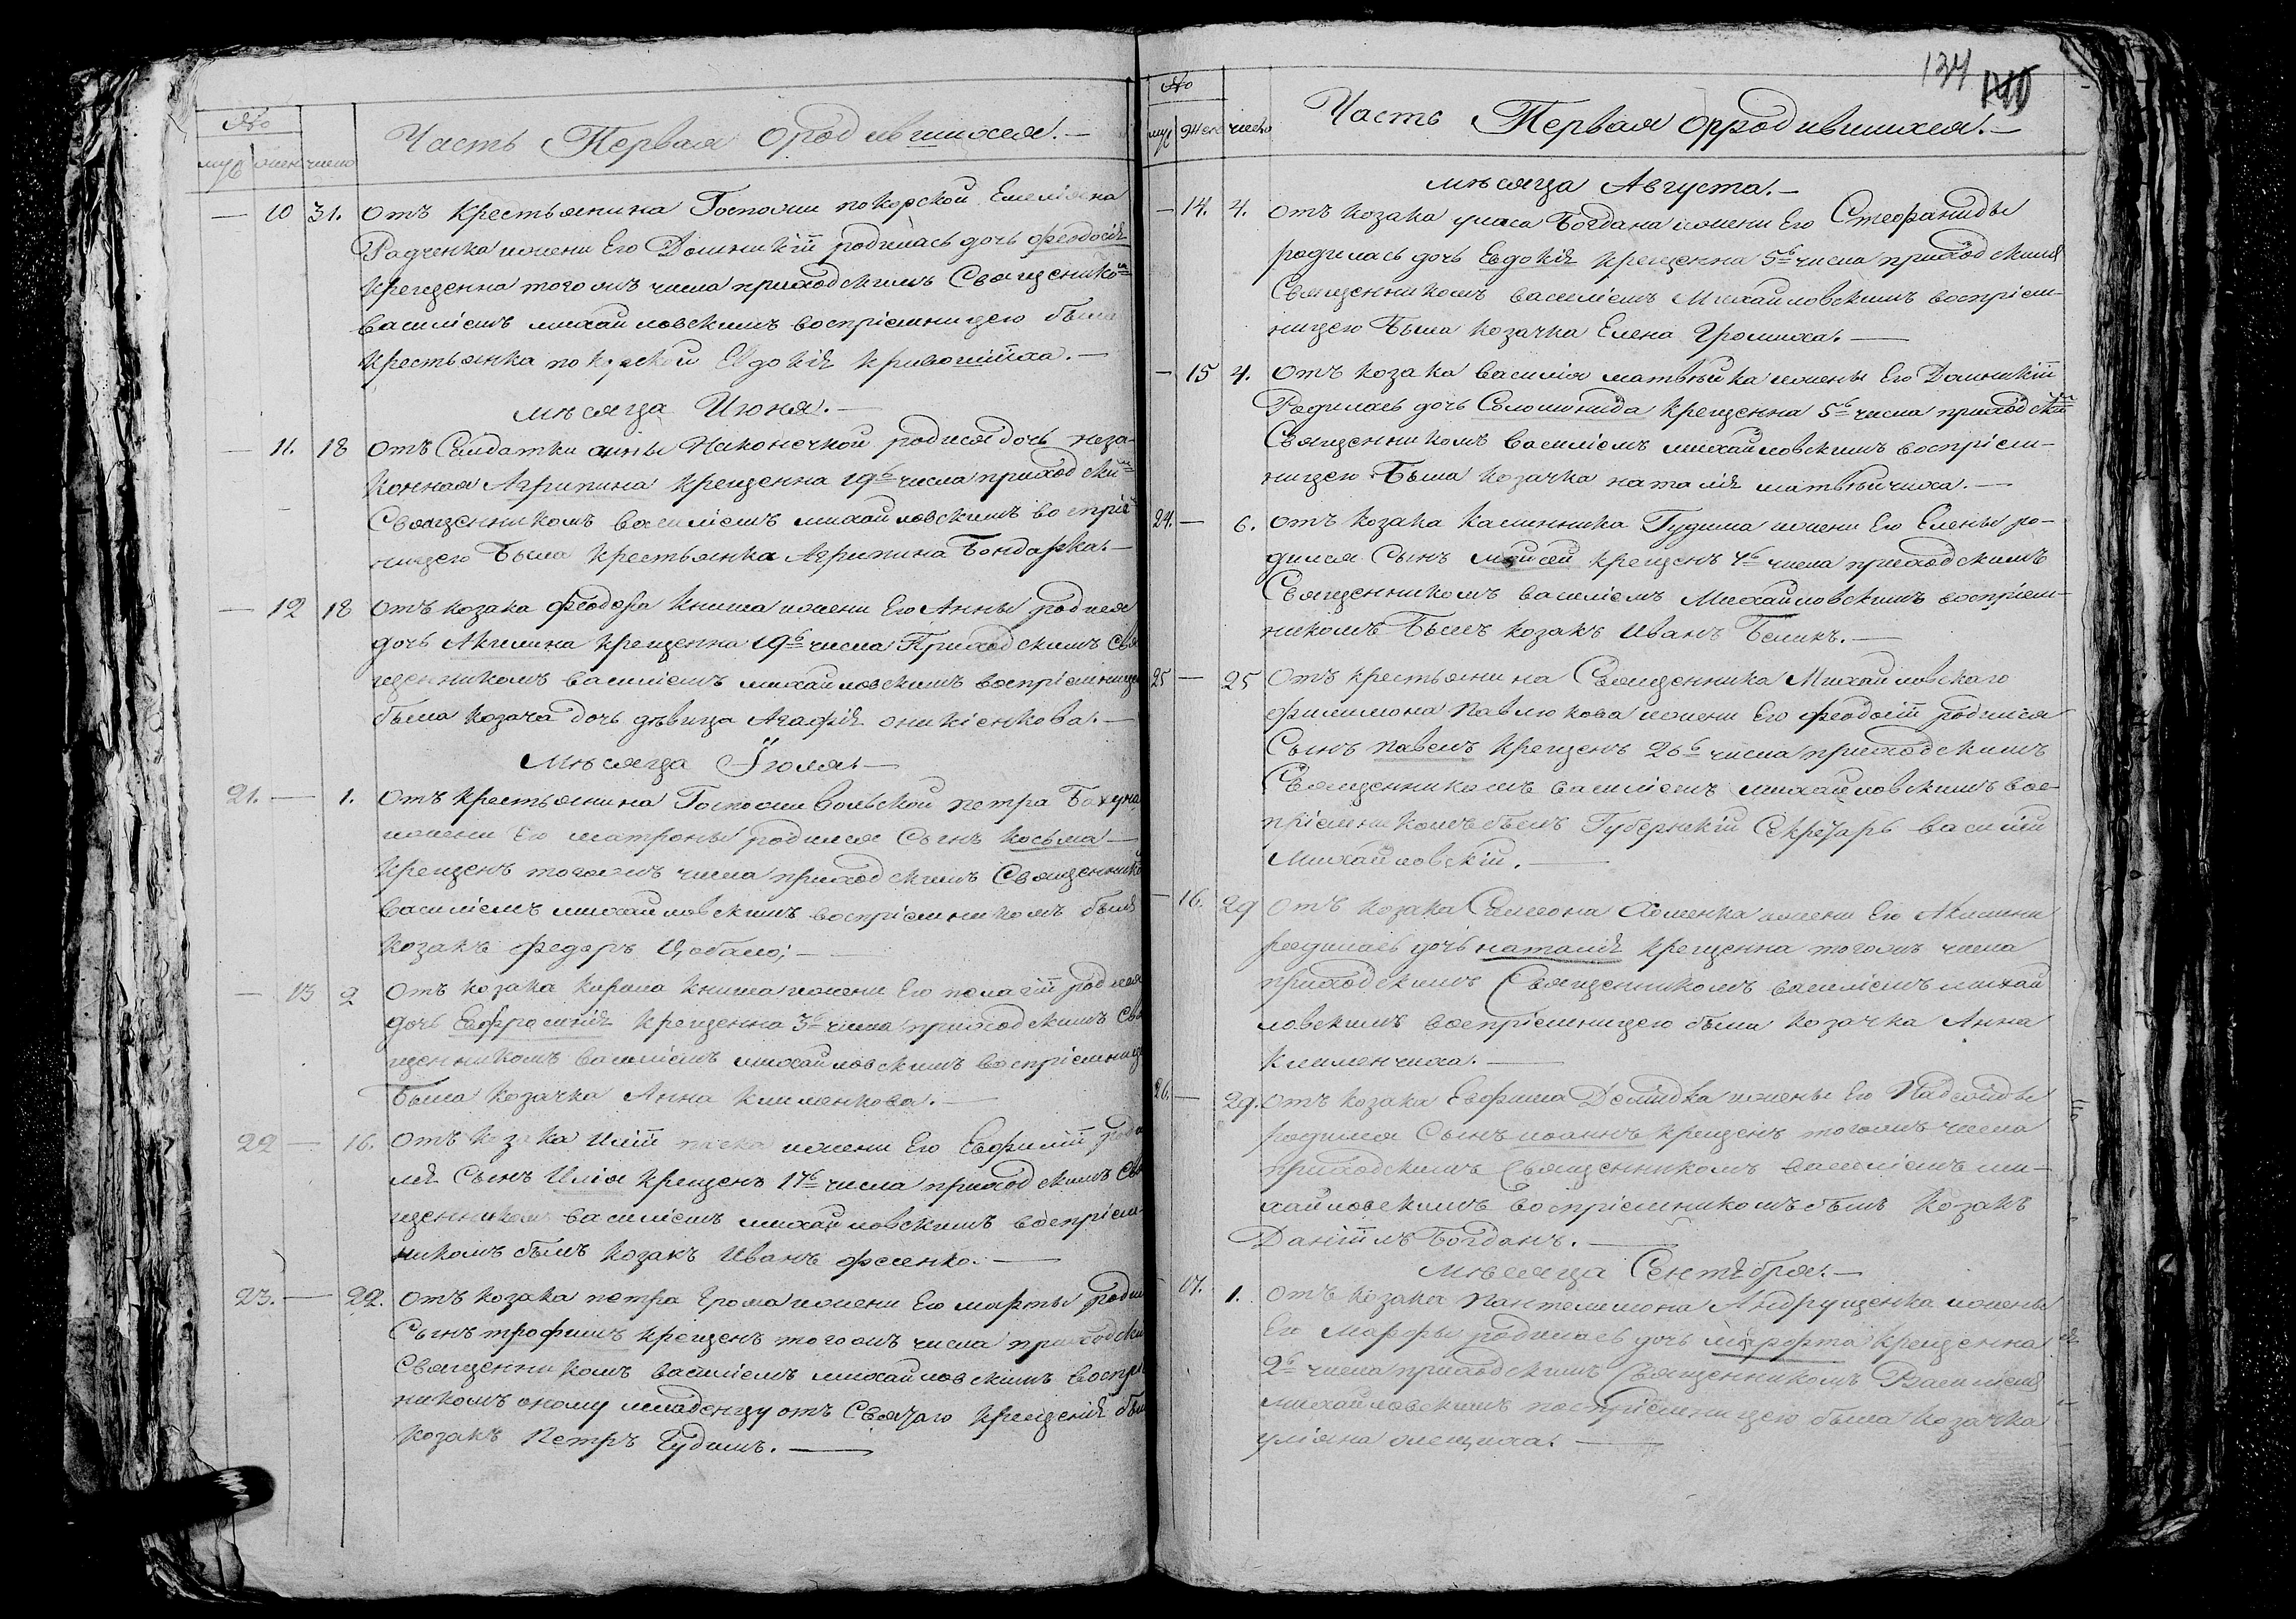 №
муж жен число
Часть Первая о родившихся. —
— 10 31. Отъ Крестьянина Госпожи покорской Емеліяна
Радченка жени Его Домникіи родилась дочь Феодосія
Крещенна тогожъ числа приходскимъ Священикомъ
Василіемъ михайловскимъ воспріемницею была
Крестьянка покорской Евдокія
мѣсяца Июня. —
— 11. 18 Отъ Салдатки анны Наконечной родися дочь неза-
конная Агрипина крещенна 19го числа приходским
Священникомъ Василіемъ михайловскимъ воспріе-
ницею Была Крестьянка Агрипина Бондарка. —
— 12 18 Отъ козака Феодора Книша жени Его Анны родися
дочь Акилина крещенна 19го числа Приходскимъ Свя
щенникомъ Василіемъ михайловскимъ воспріемницею
была козача дочь дѣвица Агафія оникіенкова. —
Мѣсяца Іюля. —
21. — 1. Отъ Крестьянина Госпожи Вольской петра
жени Его матроны родился Сынъ Косьма —
Крещенъ тогожъ числа приходскимъ Священнико
Василіемъ михайловскимъ воспріемникомъ былъ
Козакъ федоръ Цобало; —
— 13 2 Отъ козака Кирила Книша жени Его пелагіи родися
дочь Евфросинія Крещенна 3го числа приходскимъ Свя
щенникомъ Василіемъ михайловскимъ воспріемнице
Была козачка Анна Клименкова. —
22 — 16. Отъ козака Иліи жени Его Евфиміи роди
лся Сынъ Илія крещенъ 17го числа приходскимъ Свя
щенникомъ Василіемъ михайловскимъ воспріем-
никомъ былъ козакъ Иванъ фесенко. —
23. — 22. Отъ козака петра Грома жени Его марты роди
Сынъ трофимъ крещенъ тогожъ числа приходски
Священникомъ Василіемъ михайловскимъ воспри
никомъ оному младенцу отъ Святаго крещенія бы
козакъ Петръ Гудимъ. —
134
№
муж жен число
Часть Первая о родившихся. —
мѣсяца Августа. —
— 14. 4. Отъ козака Богдана жени Его Стефаниды
родилась дочь Евдокія крещенна 5го числа приходскимъ
Священникомъ василіемъ Михайловскимъ воспріем-
ницею Была козачка Елена Громиха. —
— 15 4. Отъ козака василія матвѣйка жены Его Домникіи
Родилась дочь Соломонида крещенна 5го числа приходским
Священникомъ василіемъ михайловскимъ воспріем-
ницею Была козачка наталія матвѣйчиха. —
24. — 6. Отъ козака калинника Гудима жени Его Елены ро-
дился Сынъ мойсей крещенъ 7го числа приходскимъ
Священникомъ василіемъ Михайловскимъ воспріем-
никомъ Былъ козакъ Иванъ Беликъ. —
25 — 25 Отъ крестьянина Священника Михайловскаго
филимона павлюкова жени Его феодосіи родился
Сынъ павелъ крещенъ 26го числа приходскимъ
Священникомъ василіемъ михайловскимъ вос-
пріемникомъ былъ Губернскій Секретарь василій
Михайловскій. —
— 16. 29 Отъ козака Симеона Хоменка жени Его Акилини
родилась дочь наталія крещенна тогожъ числа
приходскимъ Священникомъ василіемъ михай
ловскимъ воспріемницею была козачка Анна
клименчиха. —
26. — 29. Отъ козака Евфима Демидка жены Его
родился Сынъ иоаннъ крещенъ тогожъ числа
приходскимъ Священникомъ василіемъ ми-
хайловскимъ воспріемникомъ былъ козакъ
Даніилъ Богданъ. —
Мѣсяца Сентября. —
17. 1. Отъ козака пантелимона Андрущенка жены
Его Марфы родилась дочь марфта крещенна
2го числа приходскимъ Священникомъ Василіемъ
михайловскимъ воспріемницею была козачка
уліяна